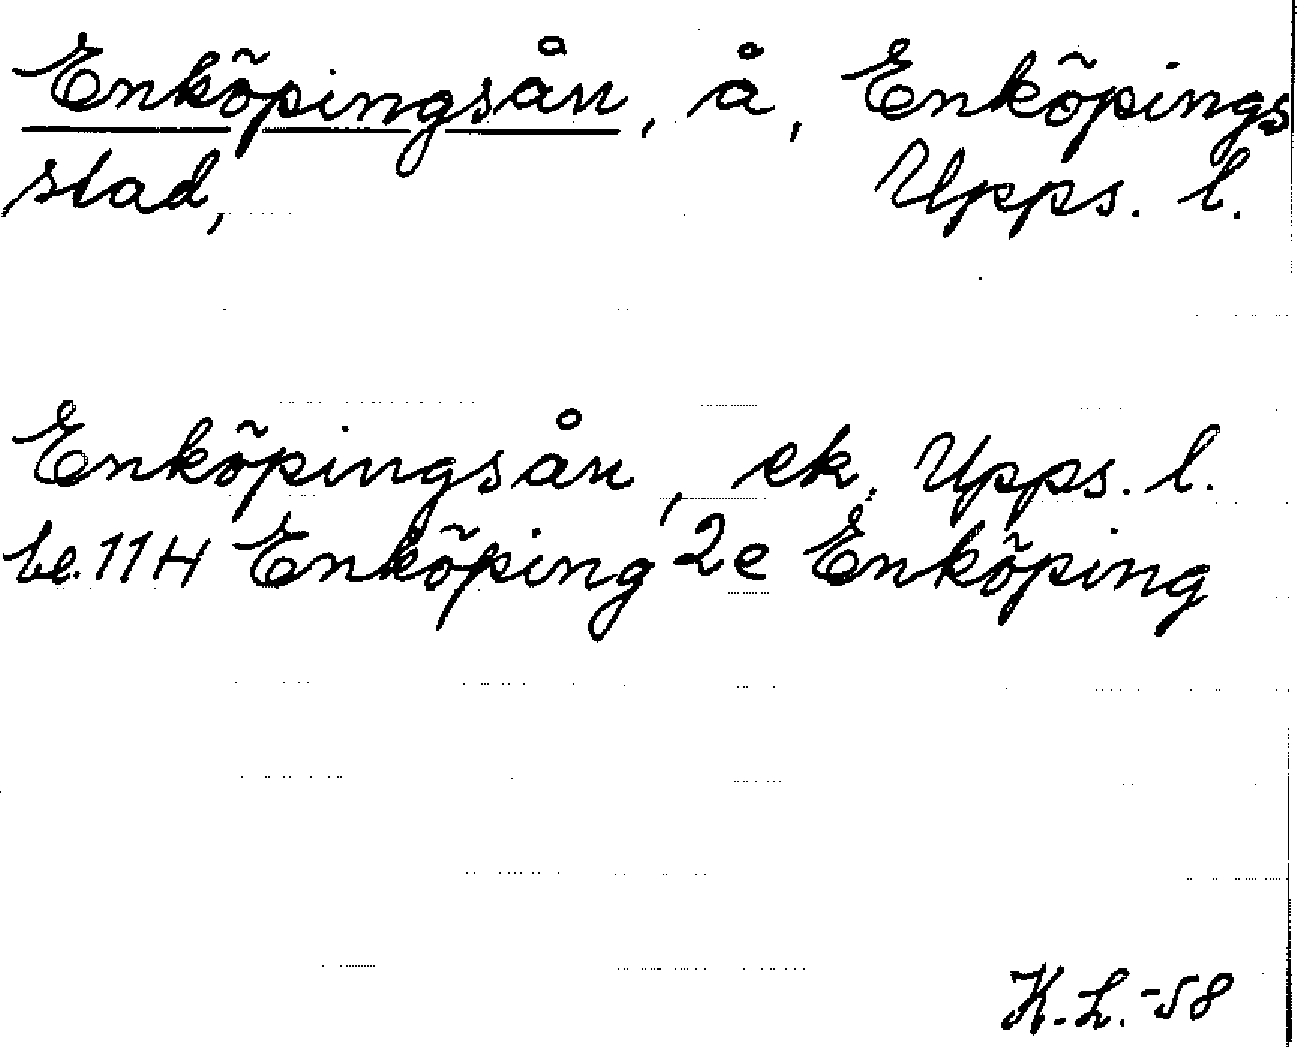 Enköpingsån, å, Enköpings
stad, Upps. l.
Enköpingsån, ek, Upps. l.
be. 11 H Enköping 2e Enköping
K.L. -58